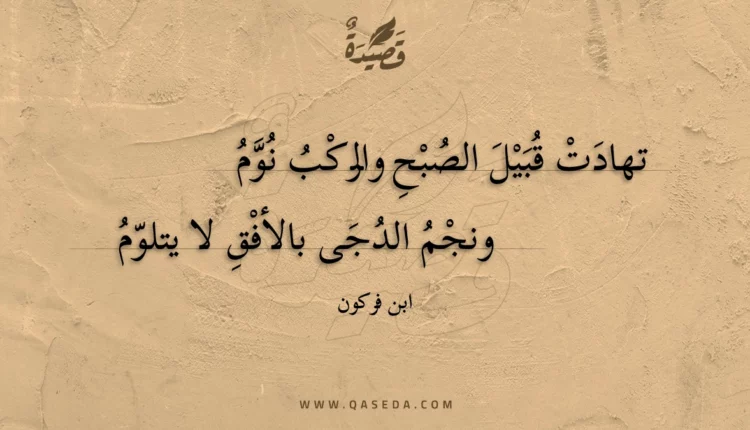 قَصِيدَةٌ
تهادَتْ قُبَيْلَ الصُبْحِ والركْبُ نُوَّمُ
ونجْمُ الدُجَى بالأفْقِ لا يتلوّمُ
ابن فركون
WWW.QASEDA.COM